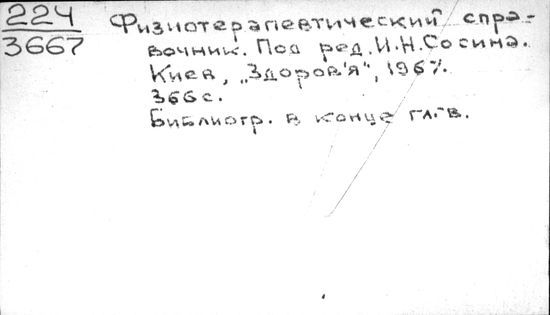 224
3667
Физиотерапевтический спра-
вочник. Под ред. И.Н.Сосина.
Киев, „Здоров'я", 1967.
366 с.
Библиогр. в конце глав.